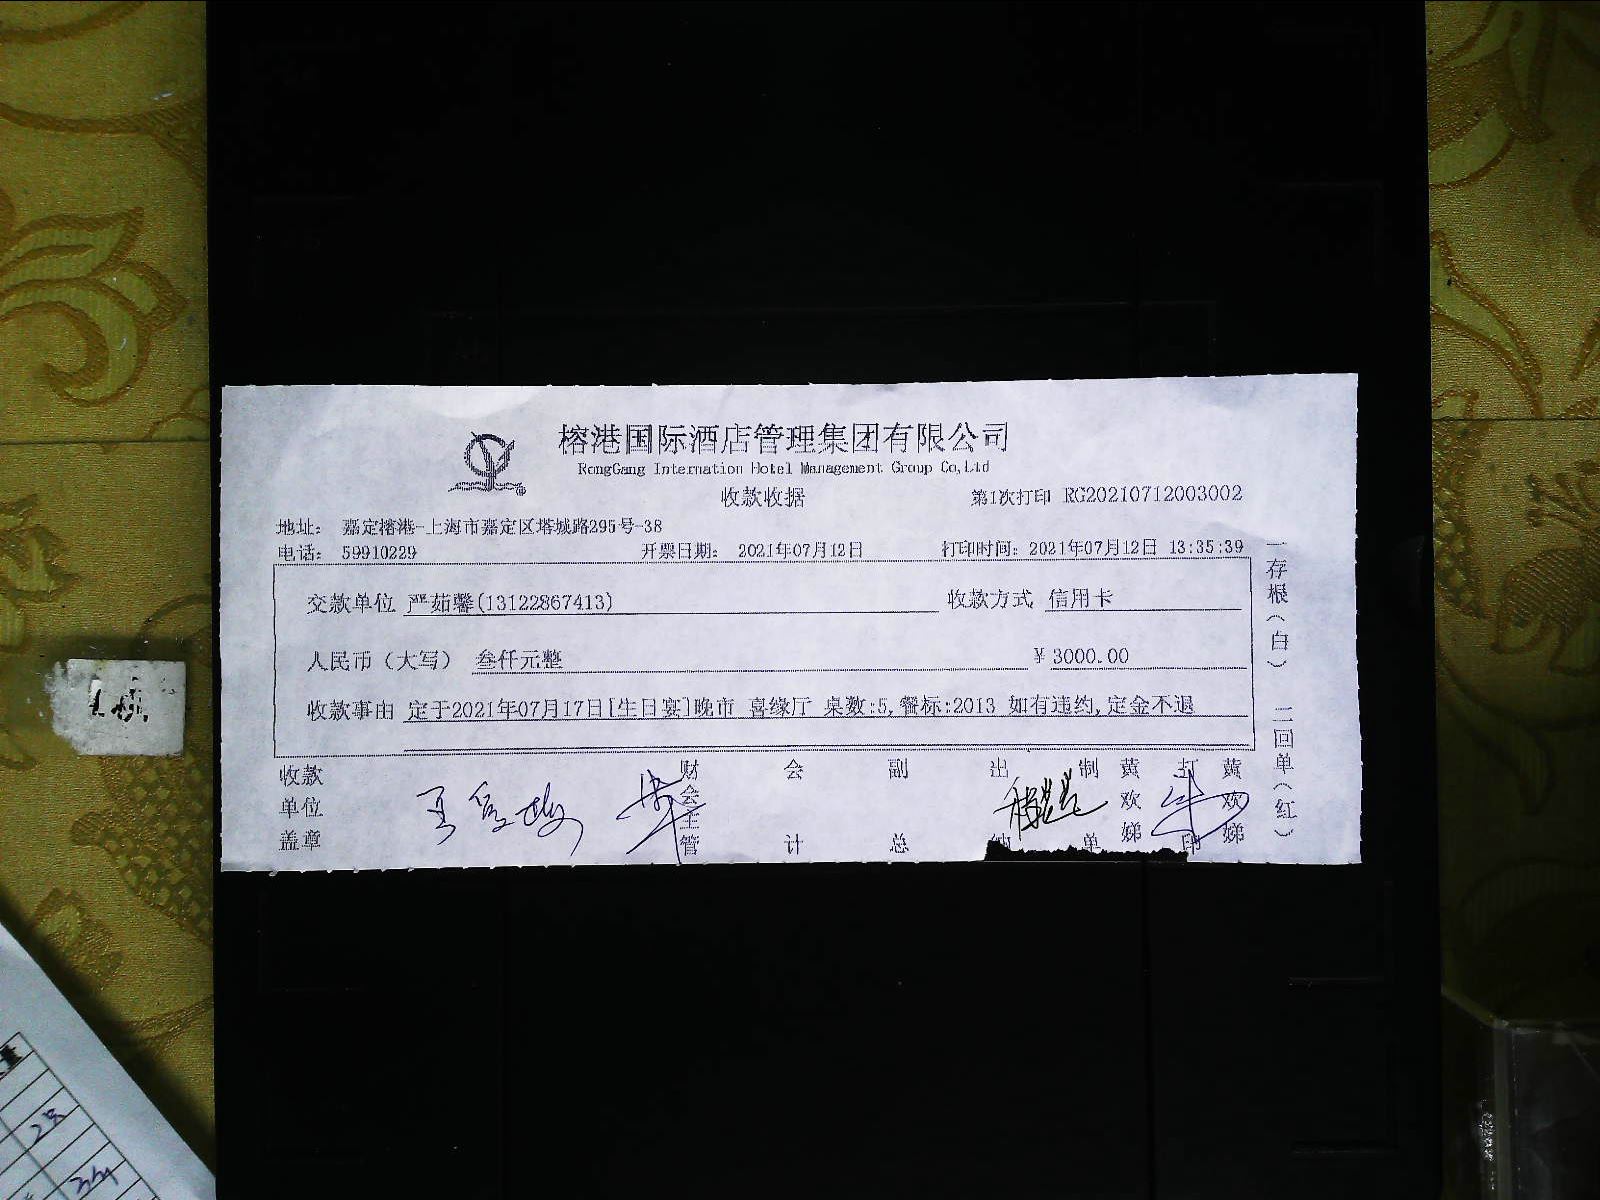 榕港国际酒店管理集团有限公司
RongGang Internation Hotel Management Group Co,Ltd
收款收据
第1次打印 RG20210712003002
地址： 嘉定榕港-上海市嘉定区塔城路295号-38
电话： 59910229 开票日期： 2021年07月12日 打印时间：2021年07月12日 13:35:39
交款单位 严茹馨(13122867413) 收款方式 信用卡
人民币（大写） 叁仟元整 ¥ 3000.00
收款事由 定于2021年07月17日[生日宴]晚市 喜缘厅 桌数:5,餐标:2013 如有违约,定金不退
收款单位盖章
财会主管
会计
副总
出纳
制单
黄欢娣
打印
黄欢娣
一存根（白） 二回单（红）